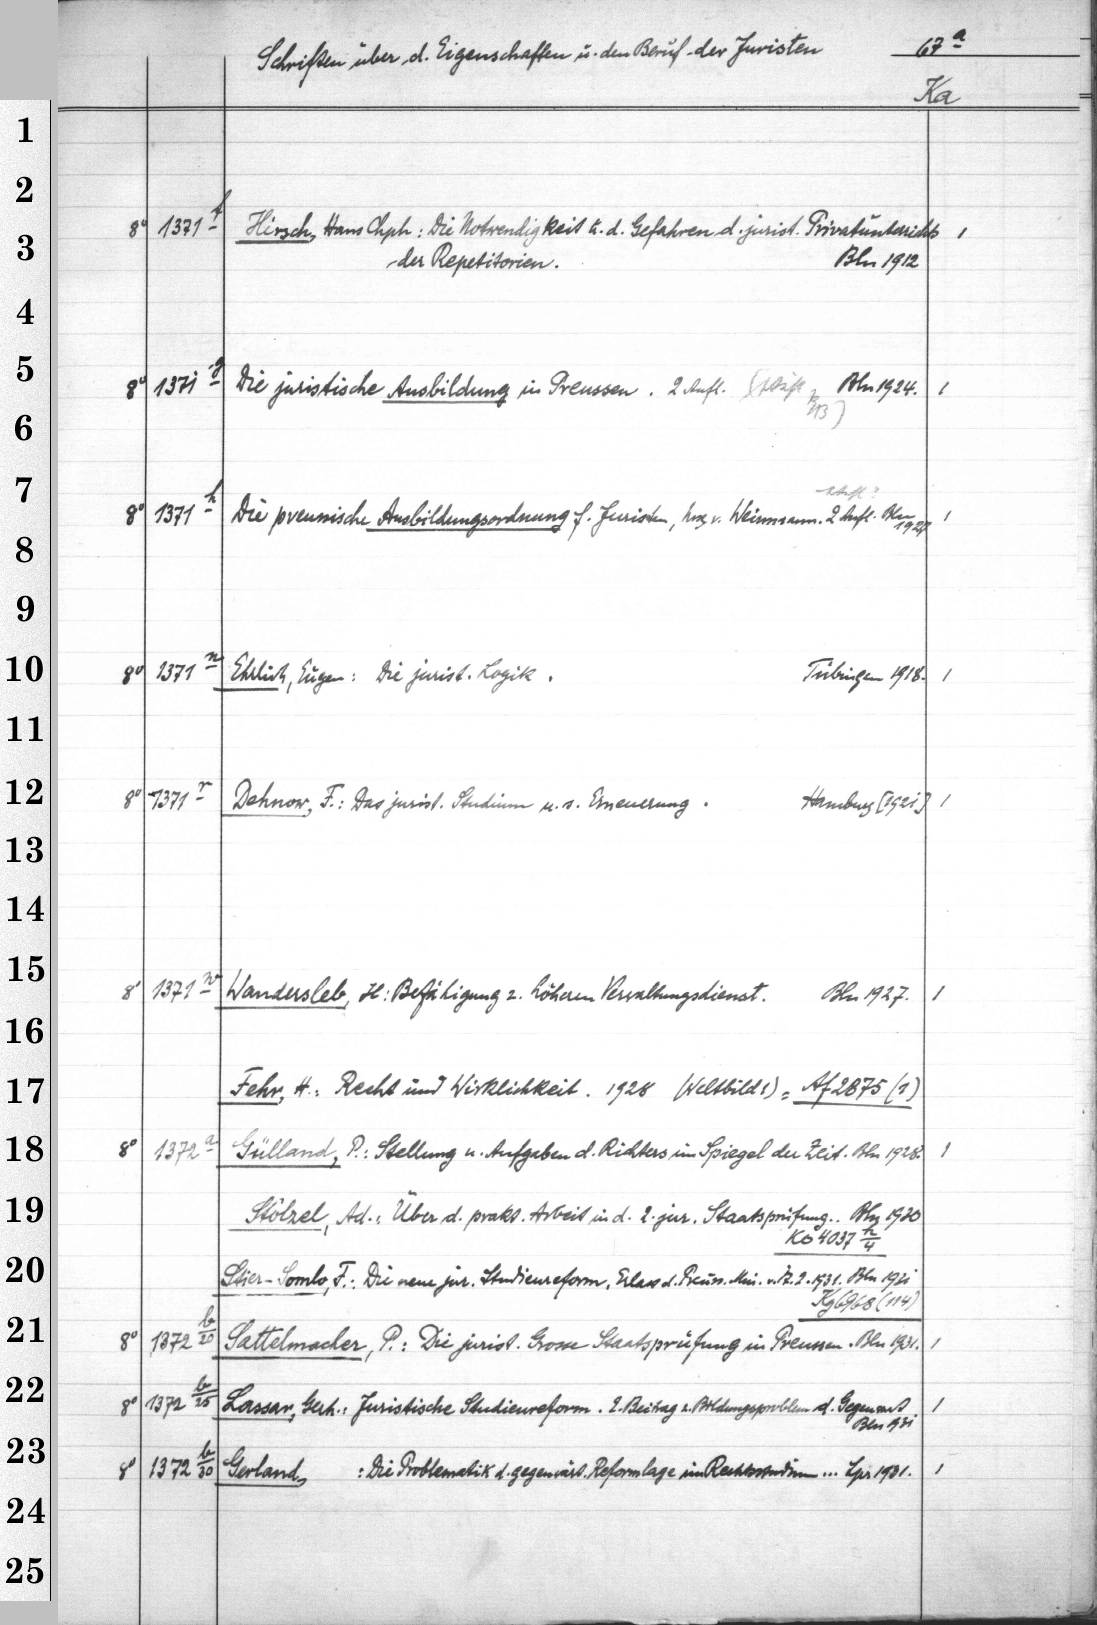 Schriften über d. Eigenschaften u. den Beruf der Juristen 67 a
Ka
1
2
8° 1371 f Hirsch, Hans Chph: Die Notwendigkeit u. d. Gefahren d. jurist. Privatunterrichts 1
3
der Repetitorien. Bln 1912
4
5
8° 1371 g Die juristische Ausbildung in Preussen. 2 Aufl. Bln 1924. 1
6
7
8° 1371 h Die preussische Ausbildungsordnung f. Juristen, hrg v. Weinmann. 2 Aufl. Bln 1
1924
8
9
10 8° 1371 n Ehrlich, Eugen: Die jurist. Logik. Tübingen 1918. 1
11
12 8° 1371 r Dehnow, F.: Das jurist. Studium u. s. Erneuerung. Hamburg [1921] 1
13
14
15
8° 1371 w Wandersleb, H: Befähigung z. höheren Verwaltungsdienst. Bln 1927. 1
16
17 Fehr, H.: Recht und Wirklichkeit. 1928 (Weltbild 1) = Af 2875 (1)
18 8° 1372 a Gülland, P.: Stellung u. Aufgaben d. Richters im Spiegel der Zeit. Bln 1928. 1
19 Stölzel, Ad.: Über d. prakt. Arbeit in d. 2. jur. Staatsprüfung.. Bln 1930
Kö 4037 h/4
20 Stier-Somlo, F.: Die neue jur. Studienreform, Erlass d. Preuss. Min. v. 17.2.1931. Bln 1931
Kg 6968 (114)
21 8° 1372 b/20 Sattelmacher, P.: Die jurist. Grosse Staatsprüfung in Preussen. Bln 1931. 1
22 8° 1372 b/25 Lassar, Gerh.: Juristische Studienreform. E. Beitrag z. Bildungsproblem d. Gegenwart 1
Bln 1931
23 8° 1372 b/30 Gerland, : Die Problematik d. gegenwärt. Reformlage im Rechtsstudium ... Lpz 1931. 1
24
25